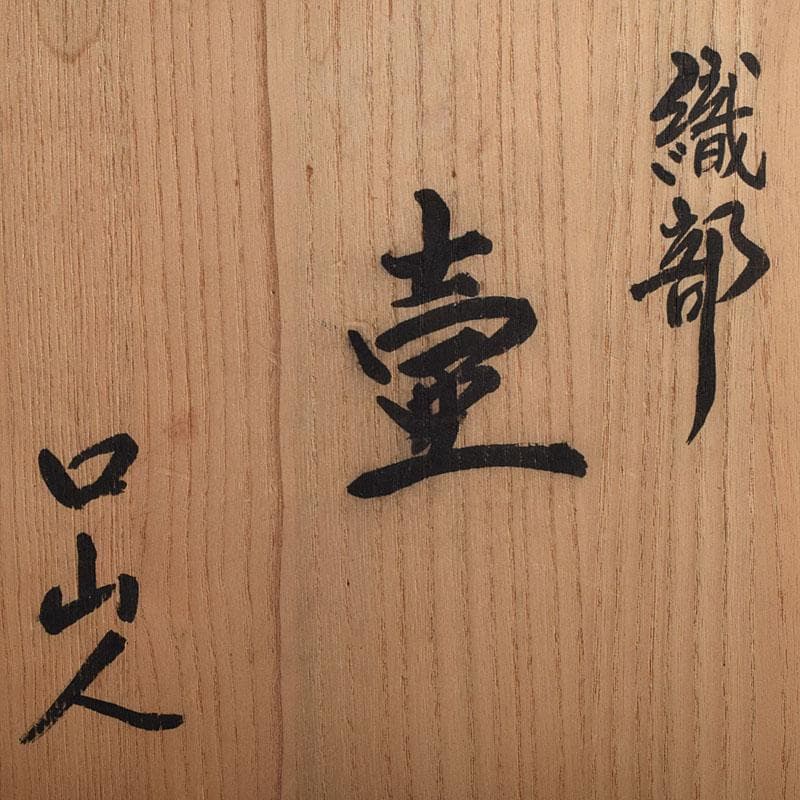 織部
壷
口山人